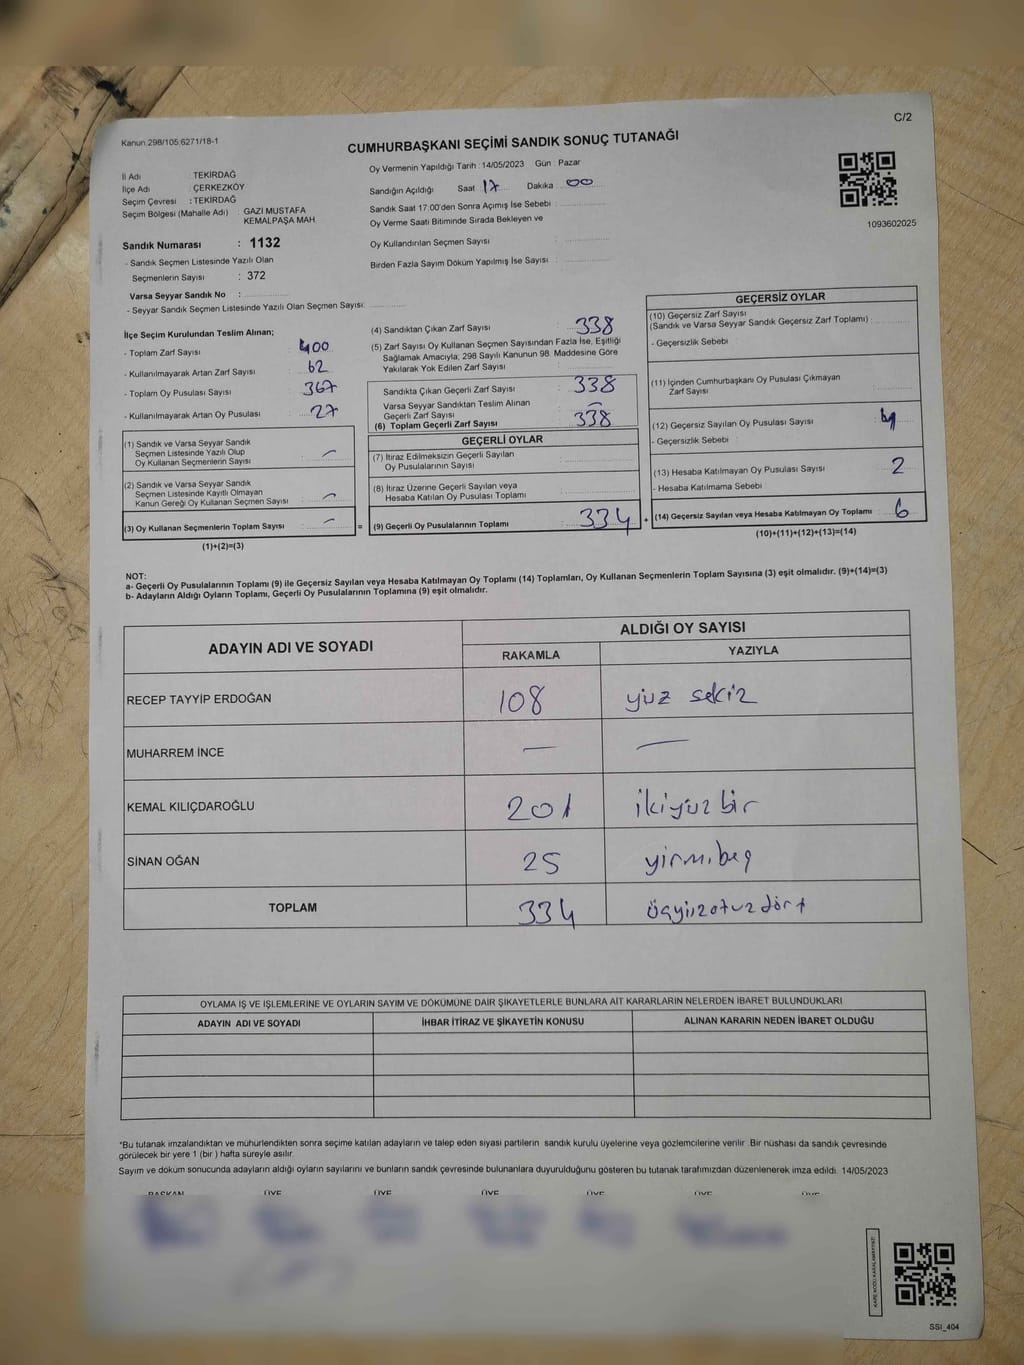 C/2
Kanun.298/105:6271/18-1
CUMHURBAŞKANI SEÇİMİ SANDIK SONUÇ TUTANAĞI
İl Adı : TEKİRDAĞ
İlçe Adı : ÇERKEZKÖY
Seçim Çevresi : TEKİRDAĞ
Seçim Bölgesi (Mahalle Adı) : GAZİ MUSTAFA
KEMALPAŞA MAH.
Sandık Numarası : 1132
- Sandık Seçmen Listesinde Yazılı Olan
Seçmenlerin Sayısı : 372
Varsa Seyyar Sandık No :
- Seyyar Sandık Seçmen Listesinde Yazılı Olan Seçmen Sayısı:
Oy Vermenin Yapıldığı Tarih : 14/05/2023 Gün : Pazar
Sandığın Açıldığı Saat 17 Dakika 00
Sandık Saat 17:00'den Sonra Açımış İse Sebebi :
Oy Verme Saati Bitiminde Sırada Bekleyen ve
Oy Kullandırılan Seçmen Sayısı :
Birden Fazla Sayım Döküm Yapılmış İse Sayısı :
1093602025
İlçe Seçim Kurulundan Teslim Alınan;
- Toplam Zarf Sayısı : 400
- Kullanılmayarak Artan Zarf Sayısı : 62
- Toplam Oy Pusulası Sayısı : 367
- Kullanılmayarak Artan Oy Pusulası : 27
(1) Sandık ve Varsa Seyyar Sandık
Seçmen Listesinde Yazılı Olup
Oy Kullanan Seçmenlerin Sayısı : –
(2) Sandık ve Varsa Seyyar Sandık
Seçmen Listesinde Kayıtlı Olmayan
Kanun Gereği Oy Kullanan Seçmen Sayısı : –
(3) Oy Kullanan Seçmenlerin Toplam Sayısı : – =
(1)+(2)=(3)
(4) Sandıktan Çıkan Zarf Sayısı : 338
(5) Zarf Sayısı Oy Kullanan Seçmen Sayısından Fazla İse, Eşitliği
Sağlamak Amacıyla; 298 Sayılı Kanunun 98. Maddesine Göre
Yakılarak Yok Edilen Zarf Sayısı :
Sandıkta Çıkan Geçerli Zarf Sayısı : 338
Varsa Seyyar Sandıktan Teslim Alınan
Geçerli Zarf Sayısı : –
(6) Toplam Geçerli Zarf Sayısı : 338
GEÇERLİ OYLAR
(7) İtiraz Edilmeksizin Geçerli Sayılan
Oy Pusulalarının Sayısı :
(8) İtiraz Üzerine Geçerli Sayılan veya
Hesaba Katılan Oy Pusulası Toplamı :
(9) Geçerli Oy Pusulalarının Toplamı : 334 +
GEÇERSİZ OYLAR
(10) Geçersiz Zarf Sayısı
(Sandık ve Varsa Seyyar Sandık Geçersiz Zarf Toplamı) :
- Geçersizlik Sebebi :
(11) İçinden Cumhurbaşkanı Oy Pusulası Çıkmayan
Zarf Sayısı :
(12) Geçersiz Sayılan Oy Pusulası Sayısı : 4
- Geçersizlik Sebebi :
(13) Hesaba Katılmayan Oy Pusulası Sayısı : 2
- Hesaba Katılmama Sebebi :
(14) Geçersiz Sayılan veya Hesaba Katılmayan Oy Toplamı : 6
(10)+(11)+(12)+(13)=(14)
NOT:
a- Geçerli Oy Pusulalarının Toplamı (9) ile Geçersiz Sayılan veya Hesaba Katılmayan Oy Toplamı (14) Toplamları, Oy Kullanan Seçmenlerin Toplam Sayısına (3) eşit olmalıdır. (9)+(14)=(3)
b- Adayların Aldığı Oyların Toplamı, Geçerli Oy Pusulalarının Toplamına (9) eşit olmalıdır.
ADAYIN ADI VE SOYADI
ALDIĞI OY SAYISI
RAKAMLA YAZIYLA
RECEP TAYYİP ERDOĞAN 108 yüz sekiz
MUHARREM İNCE – –
KEMAL KILIÇDAROĞLU 201 ikiyüz bir
SİNAN OĞAN 25 yirmibeş
TOPLAM 334 üçyüzotuzdört
OYLAMA İŞ VE İŞLEMLERİNE VE OYLARIN SAYIM VE DÖKÜMÜNE DAİR ŞİKAYETLERLE BUNLARA AİT KARARLARIN NELERDEN İBARET BULUNDUKLARI
ADAYIN ADI VE SOYADI İHBAR İTİRAZ VE ŞİKAYETİN KONUSU ALINAN KARARIN NEDEN İBARET OLDUĞU
*Bu tutanak imzalandıktan ve mühürlendikten sonra seçime katılan adayların ve talep eden siyasi partilerin sandık kurulu üyelerine veya gözlemcilerine verilir. Bir nüshası da sandık çevresinde
görülecek bir yere 1 (bir) hafta süreyle asılır.
Sayım ve döküm sonucunda adayların aldığı oyların sayılarını ve bunların sandık çevresinde bulunanlara duyurulduğunu gösteren bu tutanak tarafımızdan düzenlenerek imza edildi. 14/05/2023
BAŞKAN ÜYE ÜYE ÜYE ÜYE ÜYE ÜYE
SSI_404